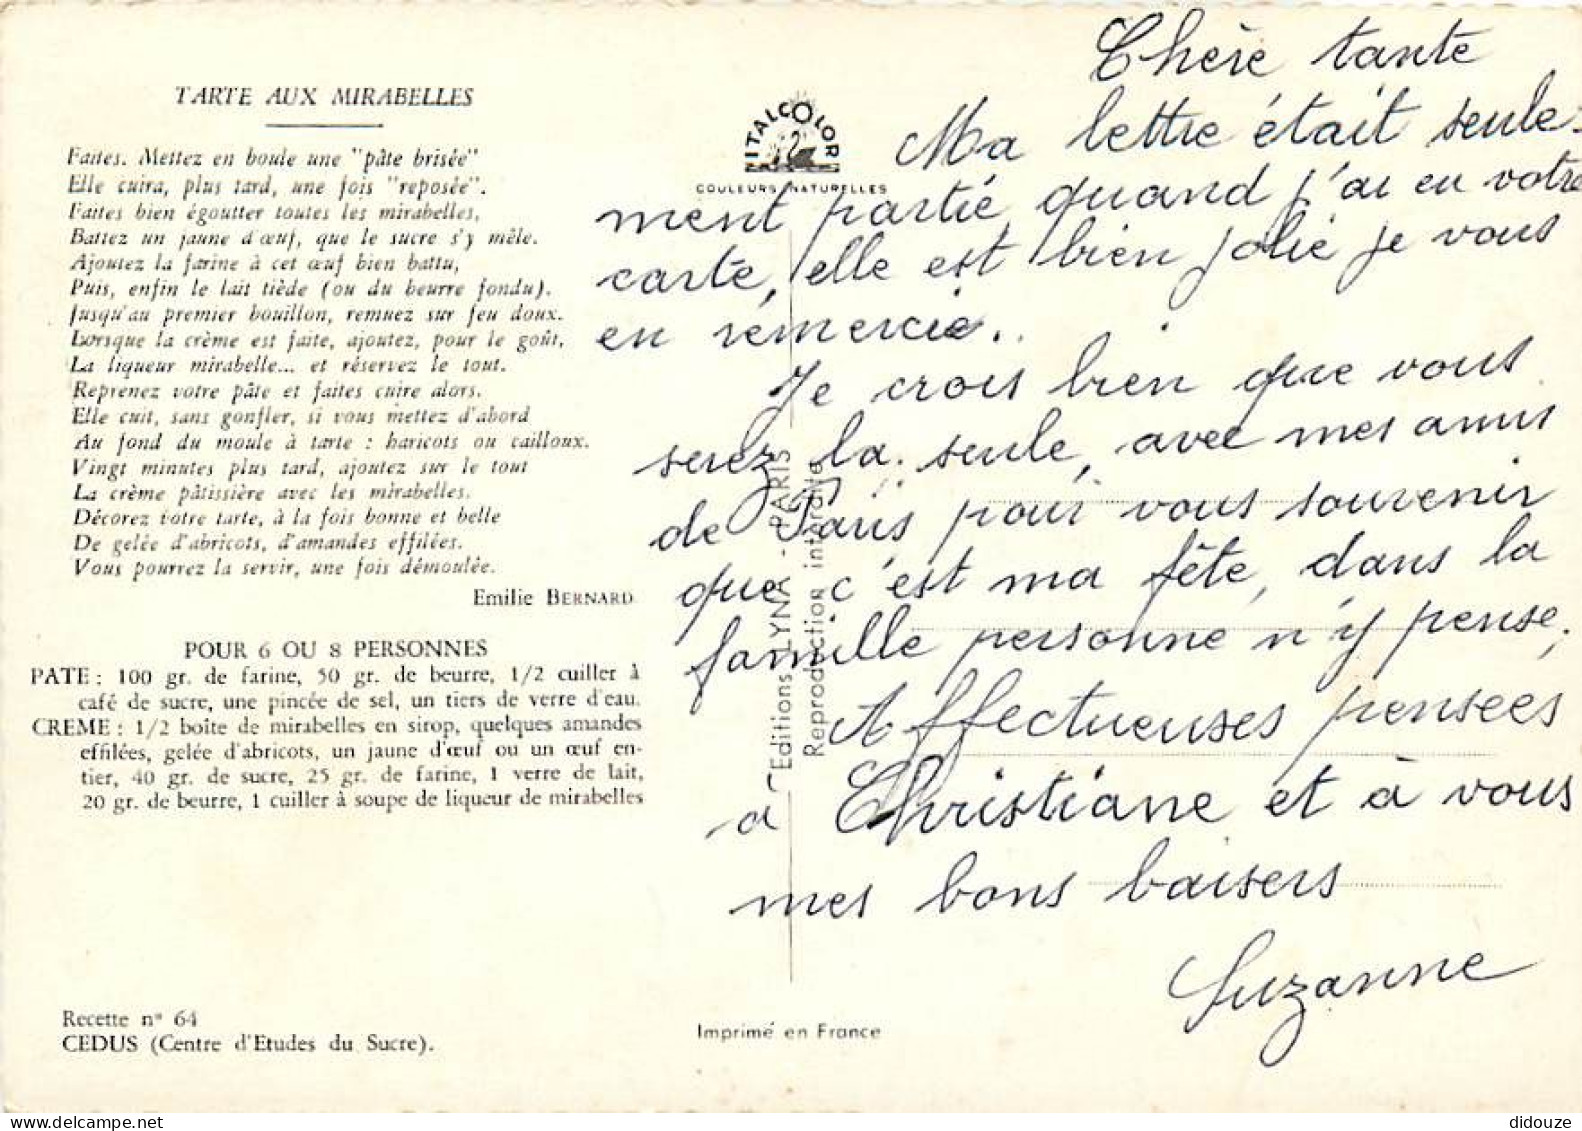 TARTE AUX MIRABELLES
Faites. Mettez en boule une "pâte brisée"
Elle cuira, plus tard, une fois "reposée".
Faites bien égoutter toutes les mirabelles,
Battez un jaune d'œuf, que le sucre s'y mêle.
Ajoutez la farine à cet œuf bien battu,
Puis, enfin le lait tiède (ou du beurre fondu).
Jusqu'au premier bouillon, remuez sur feu doux.
Lorsque la crème est faite, ajoutez, pour le goût,
La liqueur mirabelle... et réservez le tout.
Reprenez votre pâte et faites cuire alors.
Elle cuit, sans gonfler, si vous mettez d'abord
Au fond du moule à tarte : haricots ou cailloux.
Vingt minutes plus tard, ajoutez sur le tout
La crème pâtissière avec les mirabelles.
Décorez votre tarte, à la fois bonne et belle
De gelée d'abricots, d'amandes effilées.
Vous pourrez la servir, une fois démoulée.
Emilie BERNARD
POUR 6 OU 8 PERSONNES
PATE : 100 gr. de farine, 50 gr. de beurre, 1/2 cuiller à
café de sucre, une pincée de sel, un tiers de verre d'eau.
CREME : 1/2 boîte de mirabelles en sirop, quelques amandes
effilées, gelée d'abricots, un jaune d'œuf ou un œuf en-
tier, 40 gr. de sucre, 25 gr. de farine, 1 verre de lait,
20 gr. de beurre, 1 cuiller à soupe de liqueur de mirabelles
Recette n° 64
CEDUS (Centre d'Etudes du Sucre).
ITALCOLOR
COULEURS NATURELLES
Editions LYNA - PARIS
Reproduction interdite
Imprimé en France
Chère tante
Ma lettre était seule-
ment partie quand j'ai eu votre
carte, elle est bien jolie je vous
en remercie.
Je crois bien que vous
serez la seule, avec mes amis
de Paris pour vous souvenir
que c'est ma fête, dans la
famille personne n'y pense,
Affectueuses pensees
a Christiane et à vous
mes bons baisers
Suzanne
didouze